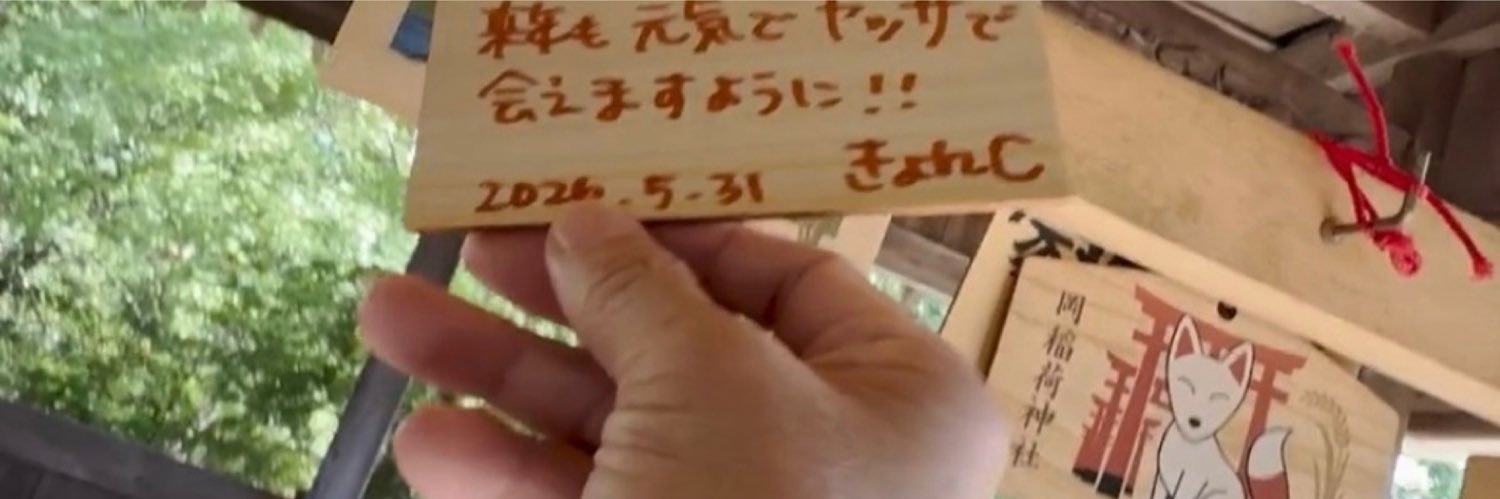 来年も 元気で ヤッサで
会えますように!!
2026.5-31
岡稲荷神社